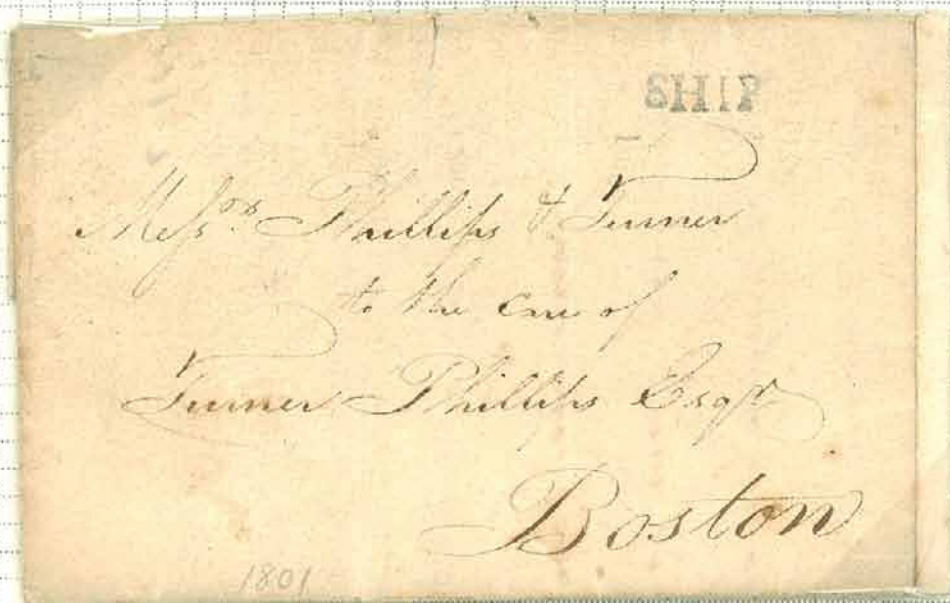 SHIP
Messrs Phillips & Turner
to the care of
Turner Phillips Esqr
Boston
1801